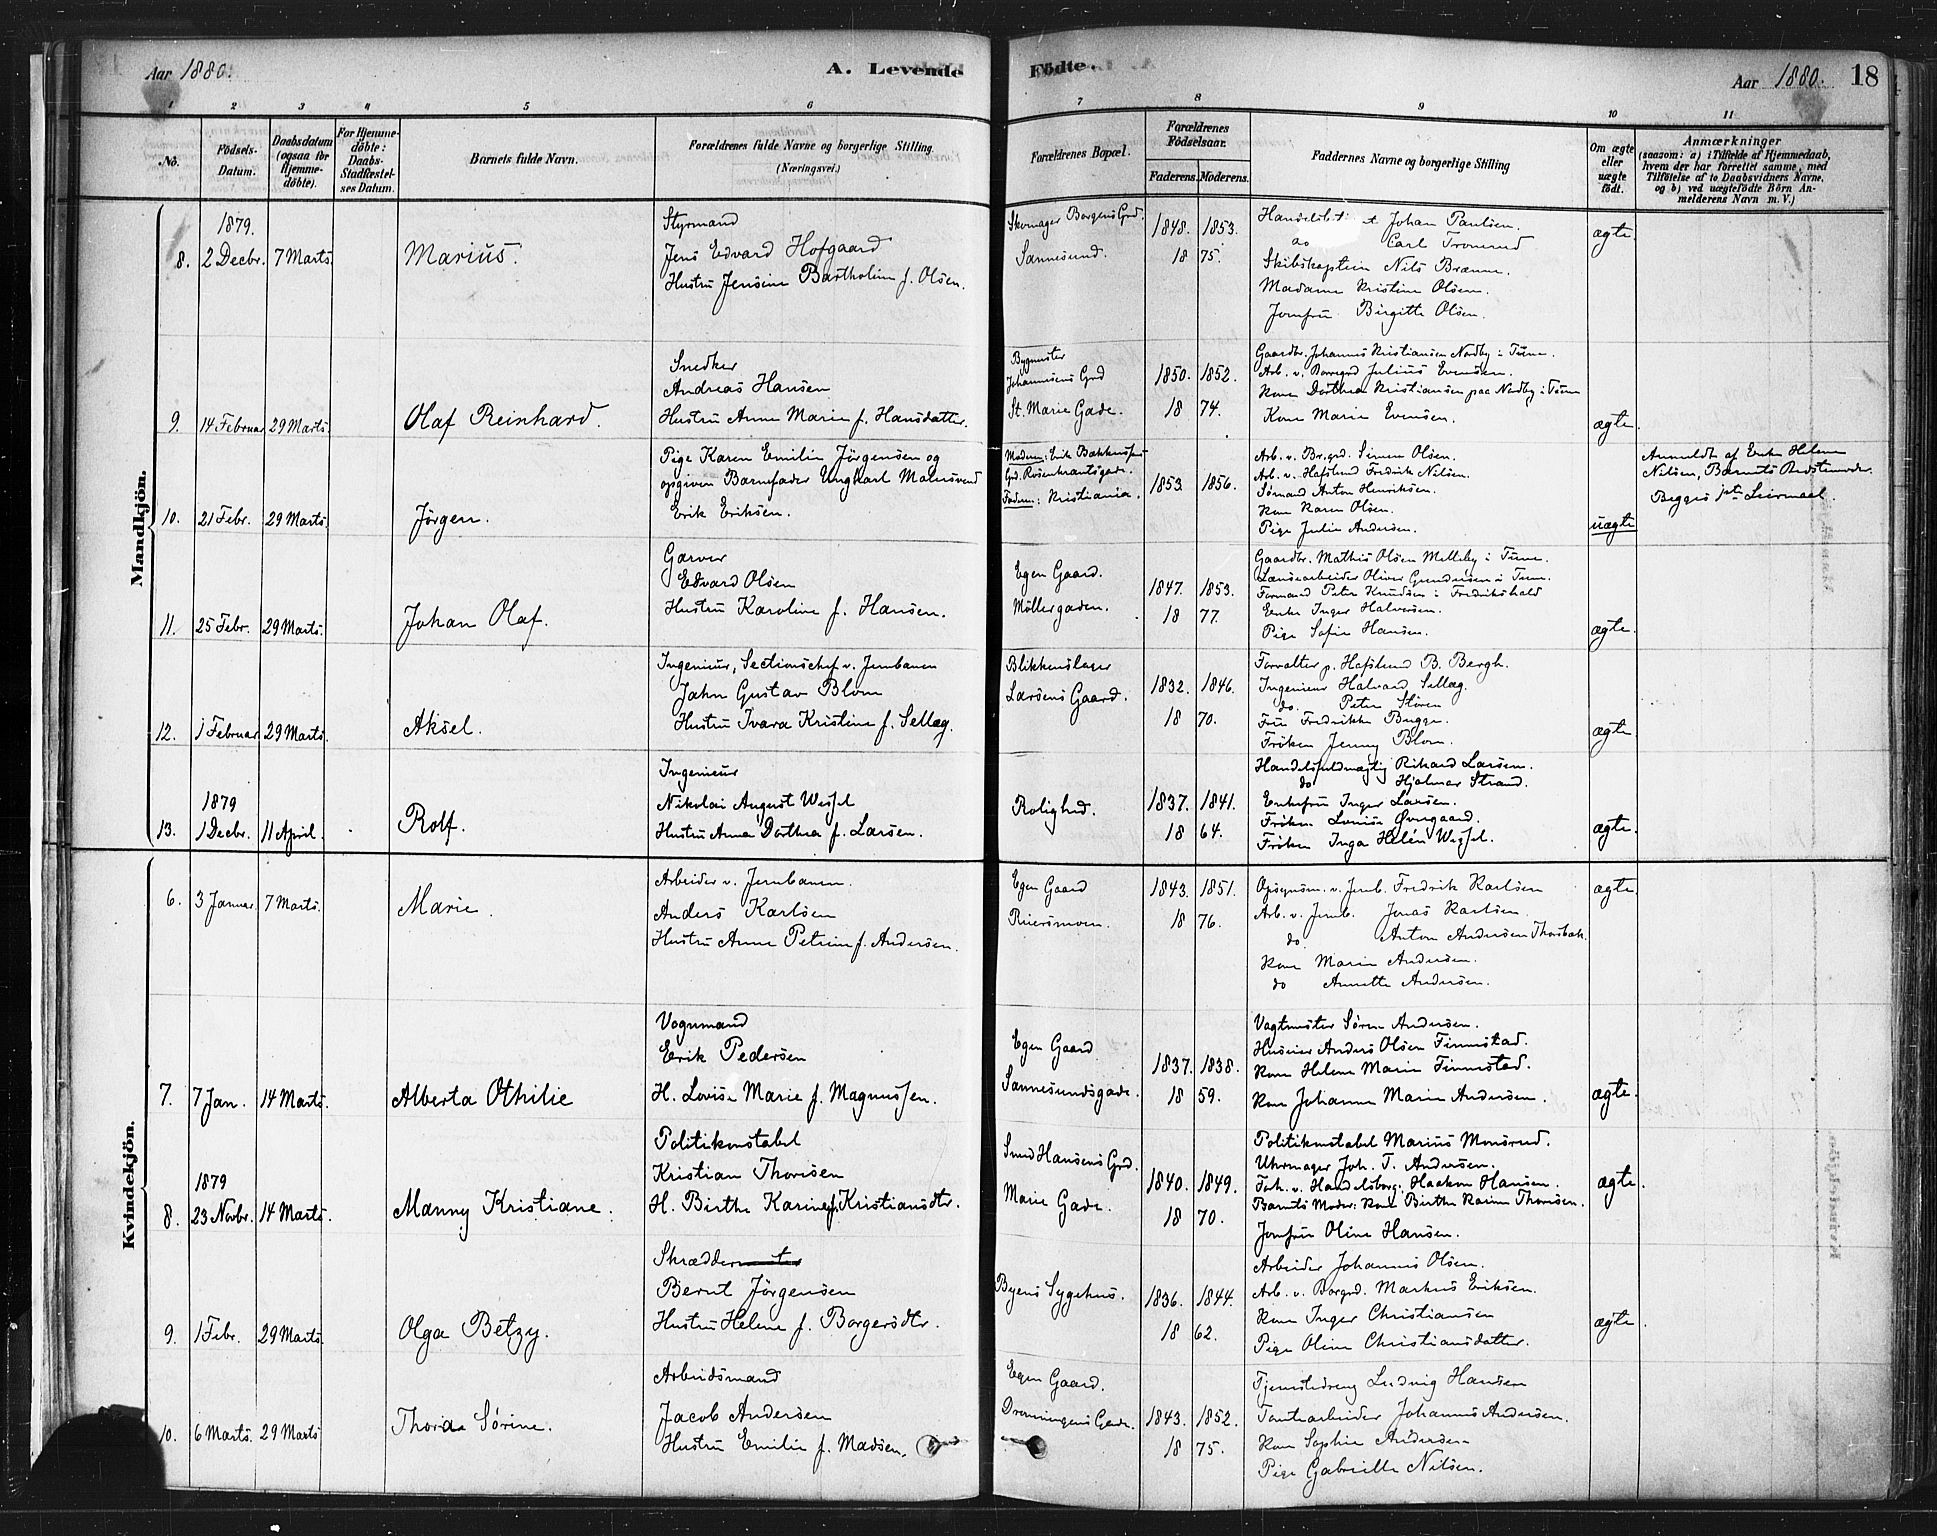 Aar 1880.
A. Levende
Fødte.
Aar 1880.
18
1 2 3 4 5 6 7 8 9 10 11
No.
Fødsels-Datum.
Daabsdatum (ogsaa for Hjemme-døbte).
For Hjemme-døbte: Daabs-Stadfæstel-ses Datum.
Barnets fulde Navn.
Forældrenes fulde Navne og borgerlige Stilling. (Næringsvei.)
Forældrenes Bopæl.
Forældrenes Fødselsaar.
Faderens. Moderens.
Faddernes Navne og borgerlige Stilling
Om ægte eller uægte født.
Anmærkninger
(saasom: a) i Tilfælde af Hjemmedaab,
hvem der har forrettet samme, med
Tilføielse af to Daabsvidners Navne,
og b) ved uægtefødte Børn An-
melderens Navn m. V.)
Mandkjön.
8. 1879. 2 Decbr. 7 Marts. Marius.
Styrmand
Jens Edvard Hofgaard
Hustru Jensine Bartholine f. Olsen.
Skomager Borgens Grd.
Sannesund.
1848. 1853.
18 75.
Johan Paulsen.
do Carl Tronrud
Skibskaptein Nils Brænne.
Madame Kristine Olsen.
Jomfru Birgitte Olsen.
ægte.
9. 14 Februar 29 Marts. Olaf Reinhard.
Snedker
Andreas Hansen
Hustru Anne Marie f. Hansdatter.
Bygmester
Johannesens Grd
St. Marie Gade.
1850. 1852.
18 74.
Gaardbr. Johannes Kristiansen Nordby i Tune.
Arb. v. Borregrd Julius Evensen.
Kone Dorthea Kristiansen paa Nordby i Tune
Kone Marie Evensen.
ægte.
10. 21 Febr. 29 Marts. Jörgen.
Pige Karen Emilie Jörgensen og
opgiven Barnefader Ungkarl
Erik Eriksen.
Moderen: Enke
Grd. Rosenkrantsgade.
Faderen: Kristiania.
1853. 1856.
Arb. v. Brgrd. Simen Olsen.
Arb. v. Hafslund Fredrik Nilsen.
Sømand Anton Henriksen.
Kone Karen Olsen.
Pige Julie Andersen.
uægte
Anmeldt af Enke Helene
Nilsen, Barnets Bedstemoder.
Begges 1ste Leiermaal.
11. 25 Febr. 29 Marts. Johan Olaf.
Garver
Edvard Olsen
Hustru Karoline f. Hansen.
Egen Gaard.
Möllergaden.
1847. 1853.
18 77.
Gaardbr. Mathis Olsen Melleby i Tune.
Lænsearbeider Oliver Gundersen i Tune.
Formand Peter Knudsen i Fredrikshald
Enke Inger Halvorsen.
Pige Sofie Hansen.
ægte.
12. 1 Februar 29 Marts. Aksel.
Ingenieur, Sectionschef v. Jernbanen
Jahn Gustav Blom
Hustru Ivara Kristine f. Selleg.
Blikkenslager
Larsens Gaard.
1832. 1846.
18 70.
Forvalter p. Hafslund B. Bergh.
Ingenieur Halvard Selleg.
do. Peter Stören
Fru Fredrikke Bugge.
Fröken Jenny Blom.
ægte.
13. 1879 1 Decbr. 11 April. Rolf.
Ingenieur
Nikolai August Wessel
Hustru Anna Dorthea f. Larsen.
Rolighed.
1837. 1841.
18 64.
Handelsfuldmægtig Rikard Larsen.
do Hjalmar Strand.
Enkefru Inger Larsen.
Fröken Louise Övergaard.
Fröken Inga Helén Wessel.
ægte.
Kvindekjön.
6. 3 Januar. 7 Marts. Marie.
Arbeider v. Jernbanen.
Anders Karlsen
Hustru Anne Petrine f. Andersen.
Egen Gaard
Ruiersmoen.
1843. 1851.
18 76.
Opsynsm. v. Jernb. Fredrik Karlsen
Arb. v. Jernb. Jonas Karlsen.
do Anton Andersen
Kone Marie Andersen.
do Annette Andersen.
ægte.
7. 7 Jan. 14 Marts. Alberta Othilie
Vognmand
Erik Pedersen
H. Lovise Marie f. Magnussen.
Egen Gaard
Sannesundsgade.
1837. 1838.
18 59.
Vagtmester Søren Andersen.
Huseier Anders Olsen Finnestad.
Kone Helene Marie Finnestad.
Kone Johanne Marie Andersen.
ægte.
8. 1879 23 Novbr. 14 Marts. Manny Kristiane.
Politikonstabel
Kristian Thorisen
H. Birthe Karine f. Kristiansdtr.
Smed Hansens Grd.
Marie Gade.
1840. 1849.
18 70.
Politikonstabel Marius Monsrud.
Uhrmager Joh. T. Andersen.
Haakon Hansen.
Barnets Moder: Kone Birthe Karine Thorisen.
Jomfru Oline Hansen.
ægte.
9. 1 Febr. 29 Marts. Olga Betzy.
Skrædder
Bernt Jörgensen
Hustru Helene f. Borgersdtr.
Byens Sygehus.
1836. 1844.
18 62.
Arbeider Johannes Olsen.
Arb. v. Borgrd. Markus Eriksen.
Kone Inger Christiansen
Pige Oline Christiansdatter.
ægte.
10. 6 Marts. 29 Marts Thora Sørine.
Arbeidsmand
Jacob Andersen
Hustru Emilie f. Madsen.
Egen Gaard.
Dronningens Gade.
1843. 1852.
18 75.
Tjenestedreng Ludvig Hansen
Tomtearbeider Johannes Andersen.
Kone Sophie Andersen
Pige Gabrielle Nilsen.